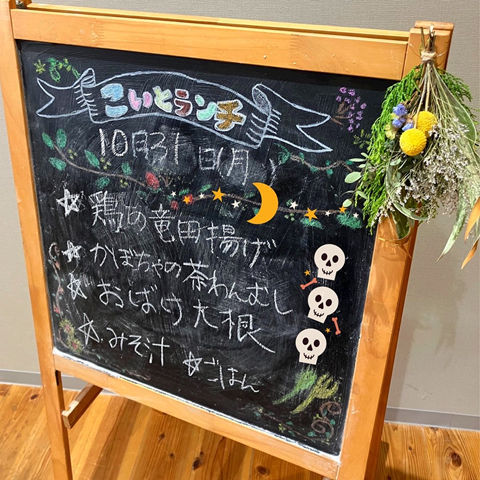 こいとランチ
10月31日(月)
☆鶏の竜田揚げ
☆かぼちゃの茶わんむし
☆おばけ大根
☆みそ汁 ☆ごはん